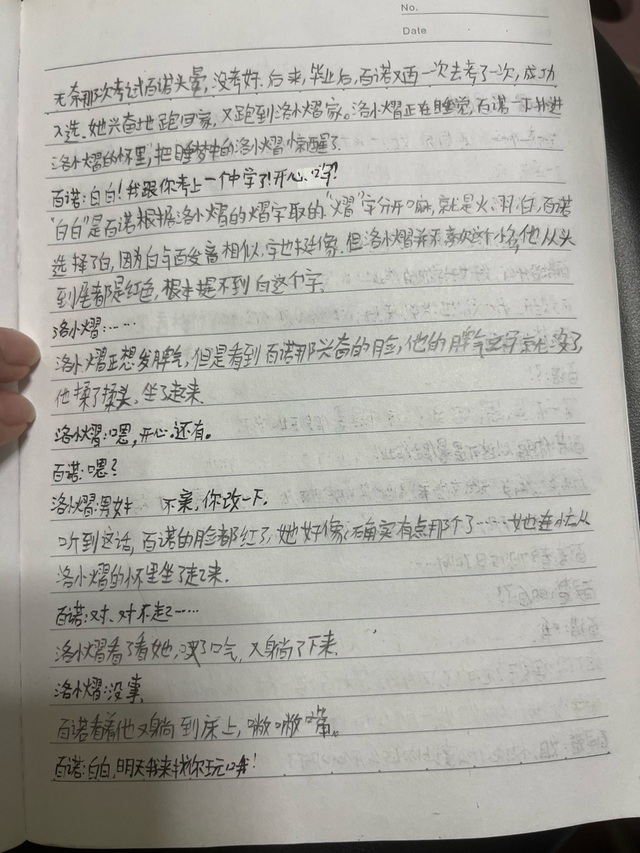 No.
Date
无奈那次考试百诺头晕,没考好.后来,毕业后,百诺又西一次去考了一次,成功
入选.她兴奋地跑回家,又跑到洛小熠家。洛小熠正在睡觉,百诺一下扑进
洛小熠的怀里,把睡梦中的洛小熠惊醒了.
百诺:白白!我跟你考上一个中学了!开心吗?
"白白"是百诺根据洛小熠的熠字取的"熠"字分开嘛,就是火.羽.白,百诺
选择了白,因为白与百发音相似,字也挺像.但洛小熠并不喜欢这个名,他从头
到尾都是红色,根本提不到白这个字.
洛小熠:……
洛小熠正想发脾气,但是看到百诺那兴奋的脸,他的脾气立马就没了,
他揉了揉头,坐了起来.
洛小熠:嗯,开心。还有。
百诺:嗯?
洛小熠:男女 不亲,你改一下.
听到这话,百诺的脸都红了,她好像确实有点那个了……她连忙从
洛小熠的怀里坐了起来.
百诺:对、对不起……
洛小熠看了看她,叹了口气,又躺了下来.
洛小熠:没事.
百诺看着他又躺到床上,嘟嘟嘴。
百诺:白白,明天我来找你玩哦!